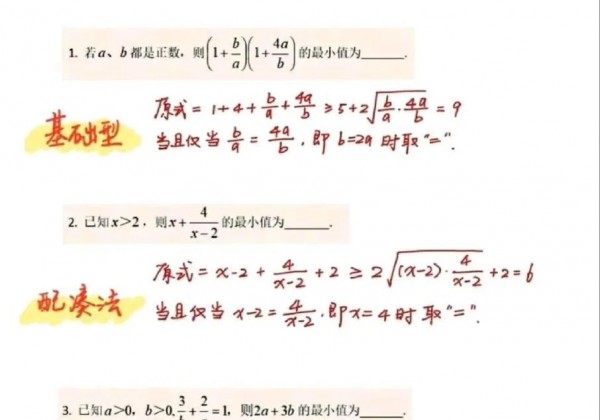 1. 若a、b都是正数，则(1+b/a)(1+4a/b)的最小值为______.
原式=1+4+b/a+4a/b≥5+2√(b/a·4a/b)=9
基础型
当且仅当b/a=4a/b，即b=2a时取"=".
2. 已知x>2，则x+4/(x-2)的最小值为______.
原式=x-2+4/(x-2)+2≥2√((x-2)·4/(x-2))+2=6
配凑法
当且仅当x-2=4/(x-2)，即x=4时取"=".
3. 已知a>0，b>0,3/b+2/a=1，则2a+3b的最小值为______.